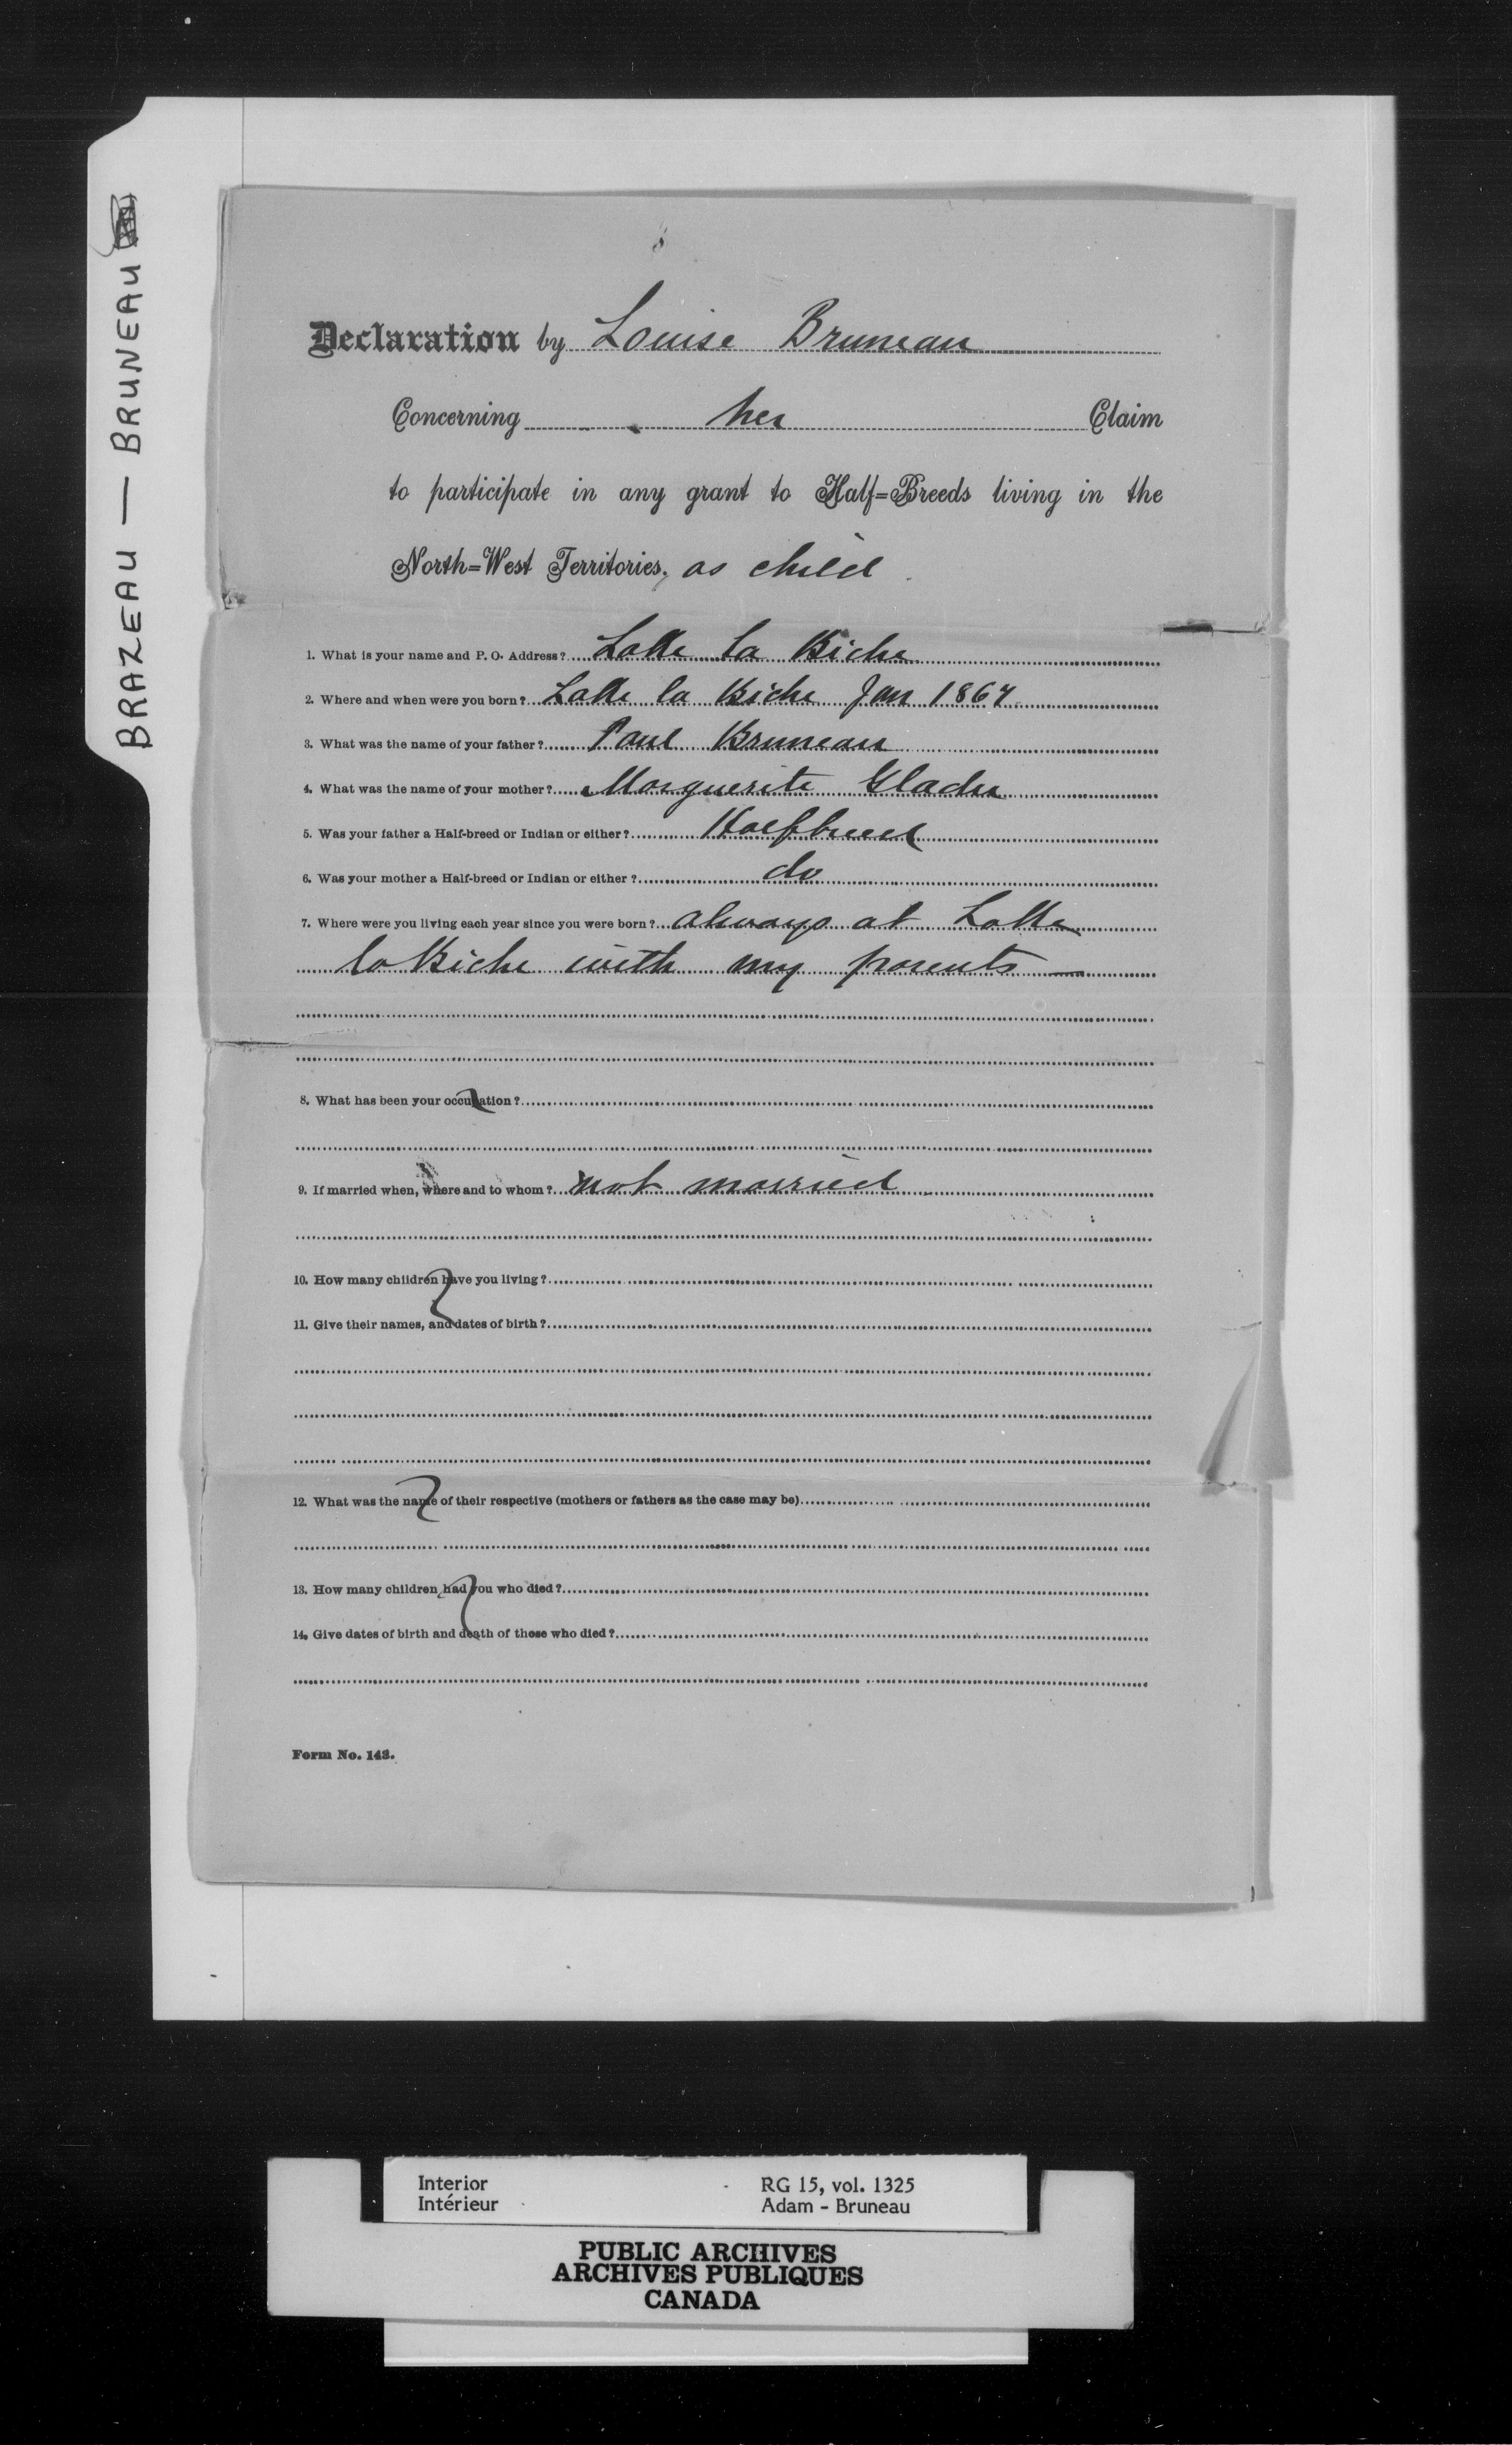 BRAZEAU — BRUNEAU
Declaration by Louise Bruneau
Concerning her Claim
to participate in any grant to Half=Breeds living in the
North=West Territories, as child
1. What is your name and P. O. Address? Lake la Biche
2. Where and when were you born? Lake la Biche Jan 1867
3. What was the name of your father? Paul Bruneau
4. What was the name of your mother? Marguerite Gladu
5. Was your father a Half-breed or Indian or either? Halfbreed
6. Was your mother a Half-breed or Indian or either? do
7. Where were you living each year since you were born? always at Lake
la Biche with my parents —
8. What has been your occupation?
9. If married when, where and to whom? not married
10. How many children have you living?
11. Give their names, and dates of birth?
12. What was the name of their respective (mothers or fathers as the case may be)
13. How many children had you who died?
14. Give dates of birth and death of those who died?
Form No. 143.
Interior RG 15, vol. 1325
Intérieur Adam - Bruneau
PUBLIC ARCHIVES
ARCHIVES PUBLIQUES
CANADA